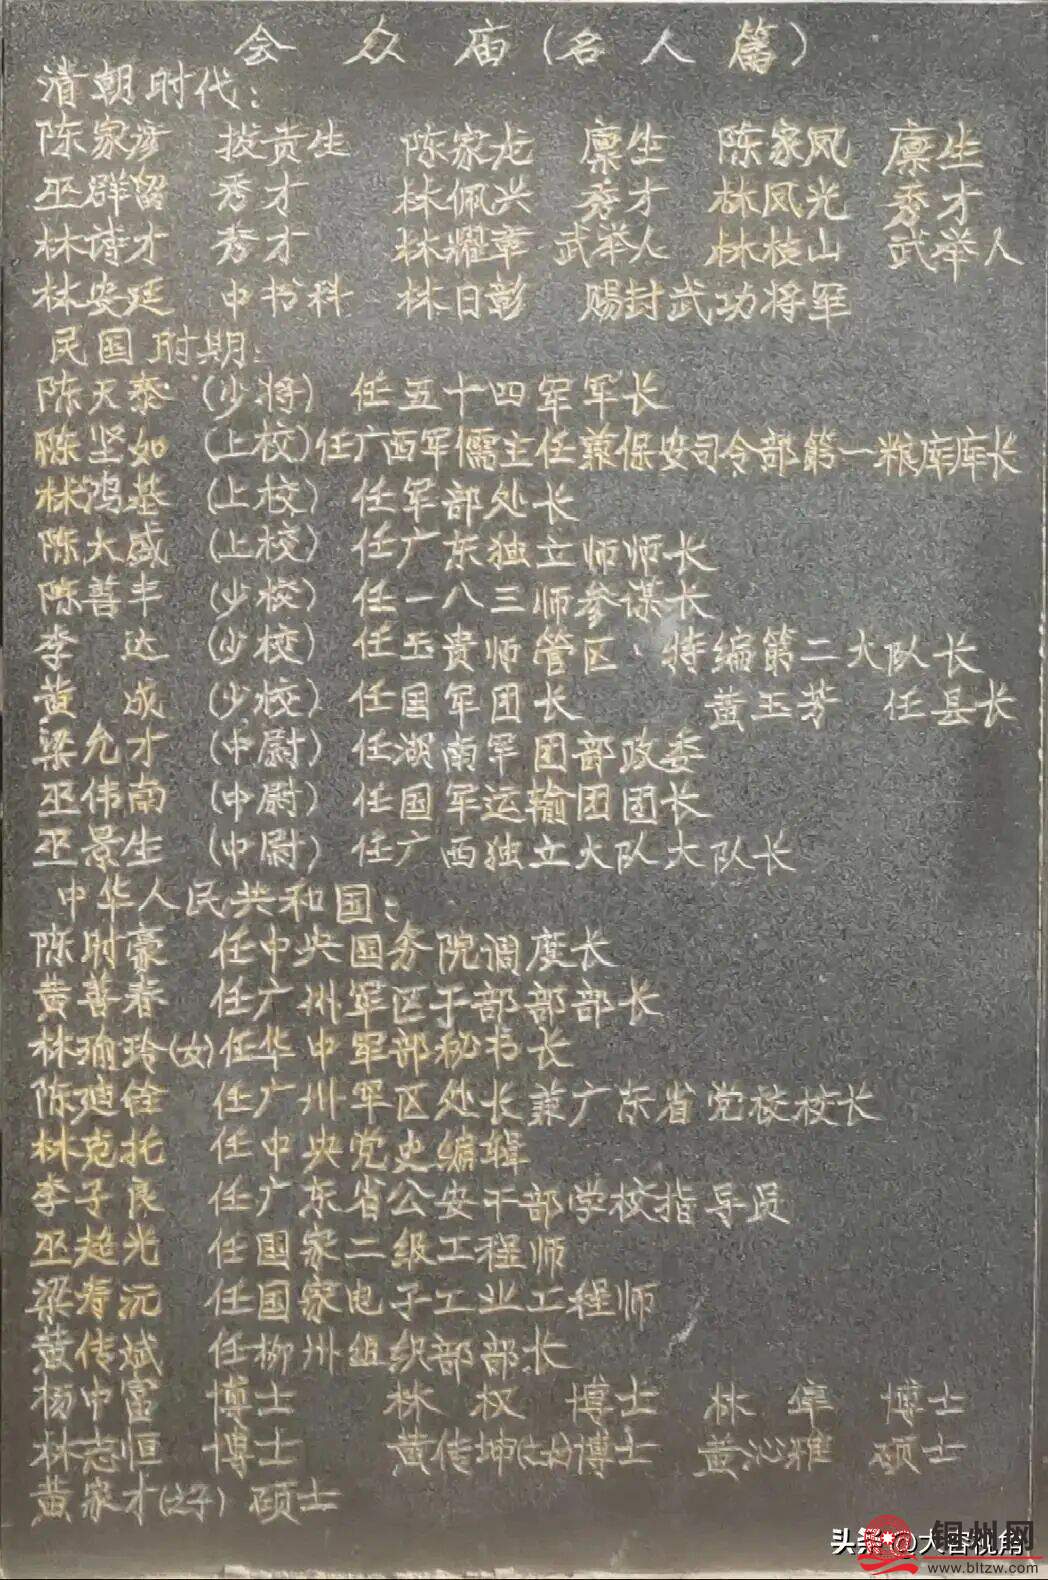 会众庙(名人篇)
清朝时代:
陈家彦 拔贡生 陈家龙 廪生 陈家凤 廪生
巫群留 秀才 林佩兴 秀才 林凤光 秀才
林诗才 秀才 林耀章 武举人 林枝山 武举人
林安廷 中书科 林日彰 赐封武功将军
民国时期:
陈天泰 (少将) 任五十四军军长
陈坚如 (上校)任广西军儒主任兼保安司令部第一粮库库长
林鸿基 (上校) 任军部处长
陈大威 (上校) 任广东独立师师长
陈善丰 (少校) 任一八三师参谋长
李达 (少校) 任玉贵师管区·特编第二大队长
黄成 (少校) 任国军团长 黄玉芳 任县长
梁允才 (中尉) 任湖南军团部政委
巫伟南 (中尉) 任国军运输团团长
巫景生 (中尉) 任广西独立大队大队长
中华人民共和国:
陈时豪 任中央国务院调度长
黄善春 任广州军区于部部部长
林玲(女)任华中军部秘书长
陈廸铨 任广州军区处长兼广东省党校校长
林克托 任中央党史编辑
李子良 任广东省公安干部学校指导员
巫超光 任国家二级工程师
梁寿沅 任国家电子工业工程师
黄传斌 任柳州组织部部长
杨中富 博士 林权 博士 林卓 博士
林志恒 博士 黄传坤(之女)博士 黄沁雅 硕士
黄家才(之子) 硕士
头条@大容视角
铜州网
www.bltzw.com